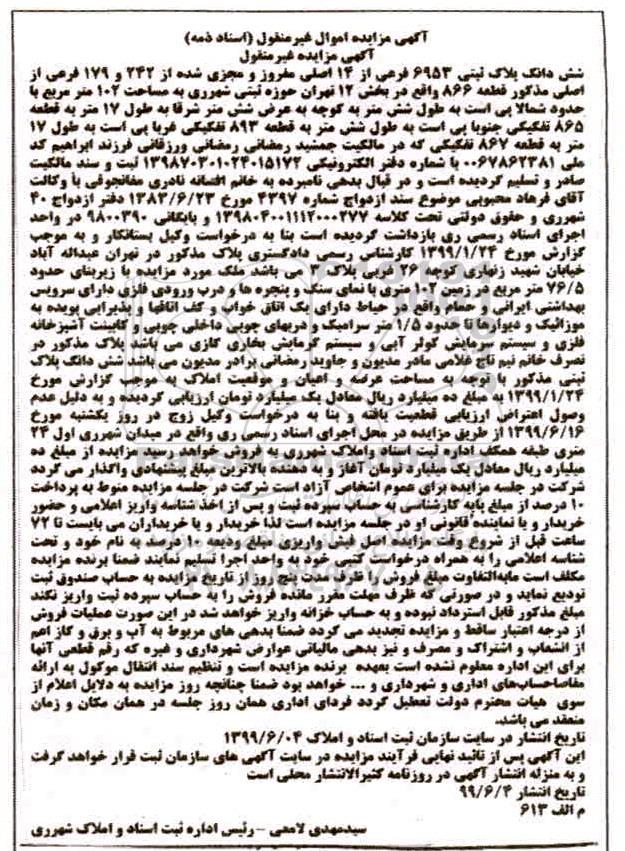 آگهی مزایده اموال غیرمنقول (اسناد ذمه)
آگهی مزایده غیرمنقول
شش دانگ پلاک ثبتی ۶۹۵۳ فرعی از ۱۴ اصلی مفروز و مجزی شده از ۲۴۲ و ۱۷۹ فرعی از
اصلی مذکور قطعه ۸۶۶ واقع در بخش ۱۲ تهران حوزه ثبتی شهرری به مساحت ۱۰۲ متر مربع با
حدود شمالا پی است به طول شش متر به کوچه به عرض شش متر شرقا به طول ۱۷ متر به قطعه
۸۶۵ تفکیکی جنوبا پی است به طول شش متر به قطعه ۸۹۳ تفکیکی غربا پی است به طول ۱۷
متر به قطعه ۸۶۷ تفکیکی که در مالکیت جمشید رمضانی رمضانی ورزقانی فرزند ابراهیم کد
ملی ۰۰۶۷۸۶۲۳۸۱ با شماره دفتر الکترونیکی ۱۳۹۸۷۰۳۰۱۰۲۴۰۱۵۱۷۲ ثبت و سند مالکیت
صادر و تسلیم گردیده است و در قبال بدهی نامبرده به خانم افسانه نادری مغانجوقی با وکالت
آقای فرهاد محبوبی موضوع سند ازدواج شماره ۴۳۹۷ مورخ ۱۳۸۳/۶/۲۳ دفتر ازدواج ۴۰
شهرری و حقوق دولتی تحت کلاسه ۱۳۹۸۰۴۰۰۱۱۱۲۰۰۰۲۷۷ و بایگانی ۹۸۰۰۳۹۰ در واحد
اجرای اسناد رسمی ری بازداشت گردیده است بنا به درخواست وکیل بستانکار و به موجب
گزارش مورخ ۱۳۹۹/۱/۲۴ کارشناس رسمی دادگستری پلاک مذکور در تهران عبدالله آباد
خیابان شهید زنهاری کوچه ۲۶ غربی پلاک ۷ می باشد ملک مورد مزایده با زیربنای حدود
۷۶/۵ متر مربع در زمین ۱۰۲ متری با نمای سنگ و پنجره ها و درب ورودی فلزی دارای سرویس
بهداشتی ایرانی و حمام واقع در حیاط دارای یک اتاق خواب و کف اتاقها و پذیرایی پوبده به
موزائیک و دیوارها تا حدود ۱/۵ متر سرامیک و دربهای چوبی داخلی چوبی و کابینت آشپزخانه
فلزی و سیستم سرمایش کولر آبی و سیستم گرمایش بخاری گازی می باشد پلاک مذکور در
تصرف خانم نیم تاج غلامی مادر مدیون و جاوید رمضانی برادر مدیون می باشد شش دانگ پلاک
ثبتی مذکور با توجه به مساحت عرصه و اعیان و موقعیت املاک به موجب گزارش مورخ
۱۳۹۹/۱/۲۴ به مبلغ ده میلیارد ریال معادل یک میلیارد تومان ارزیابی گردیده و به دلیل عدم
وصول اعتراض ارزیابی قطعیت یافته و بنا به درخواست وکیل زوج در روز یکشنبه مورخ
۱۳۹۹/۶/۱۶ از طریق مزایده در محل اجرای اسناد رسمی ری واقع در میدان شهرری اول ۲۴
متری طبقه همکف اداره ثبت اسناد واملاک شهرری به فروش خواهد رسید مزایده از مبلغ ده
میلیارد ریال معادل یک میلیارد تومان آغاز و به دهنده بالاترین مبلغ پیشنهادی واگذار می گردد
شرکت در جلسه مزایده برای عموم اشخاص آزاد است شرکت در جلسه مزایده منوط به پرداخت
۱۰ درصد از مبلغ پایه کارشناسی به حساب سپرده ثبت و پس از اخذ شناسه واریز اعلامی و حضور
خریدار و یا نماینده قانونی او در جلسه مزایده است لذا خریدار و یا خریداران می بایست تا ۷۲
ساعت قبل از شروع وقت مزایده اصل فیش واریزی مبلغ ودیعه ۱۰ درصد به نام خود و تحت
شناسه اعلامی را به همراه درخواست کتبی خود به واحد اجرا تسلیم نمایند ضمنا برنده مزایده
مکلف است مابه‌التفاوت مبلغ فروش را ظرف مدت پنج روز از تاریخ مزایده به حساب صندوق ثبت
تودیع نماید و در صورتی که ظرف مهلت مقرر مانده فروش را به حساب سپرده ثبت واریز نکند
مبلغ مذکور قابل استرداد نبوده و به حساب خزانه واریز خواهد شد در این صورت عملیات فروش
از درجه اعتبار ساقط و مزایده تجدید می گردد ضمنا بدهی های مربوط به آب و برق و گاز اعم
از انشعاب و اشتراک و مصرف و نیز بدهی مالیاتی عوارض شهرداری و غیره که رقم قطعی آنها
برای این اداره معلوم نشده است بعهده برنده مزایده است و تنظیم سند انتقال موکول به ارائه
مفاصاحساب‌های اداری و شهرداری و ... خواهد بود ضمنا چنانچه روز مزایده به دلایل اعلام از
سوی هیات محترم دولت تعطیل گردد فردای اداری همان روز جلسه در همان مکان و زمان
منعقد می باشد.
تاریخ انتشار در سایت سازمان ثبت اسناد و املاک ۱۳۹۹/۶/۰۴
این آگهی پس از تائید نهایی فرآیند مزایده در سایت آگهی های سازمان ثبت قرار خواهد گرفت
و به منزله انتشار آگهی در روزنامه کثیرالانتشار محلی است
تاریخ انتشار ۹۹/۶/۴
م الف ۶۱۳
سیدمهدی لامعی – رئیس اداره ثبت اسناد و املاک شهرری